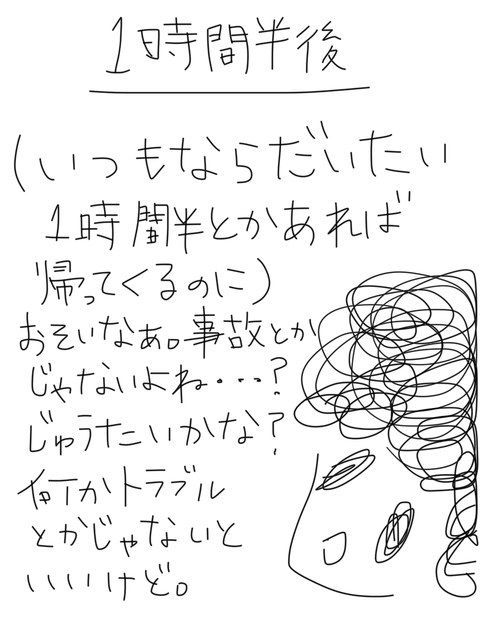 1時間半後
(いつもならだいたい
1時間半とかあれば
帰ってくるのに)
おそいなぁ。事故とか
じゃないよね・・・?
じゅうたいかな?
何かトラブル
とかじゃないと
いいけど。